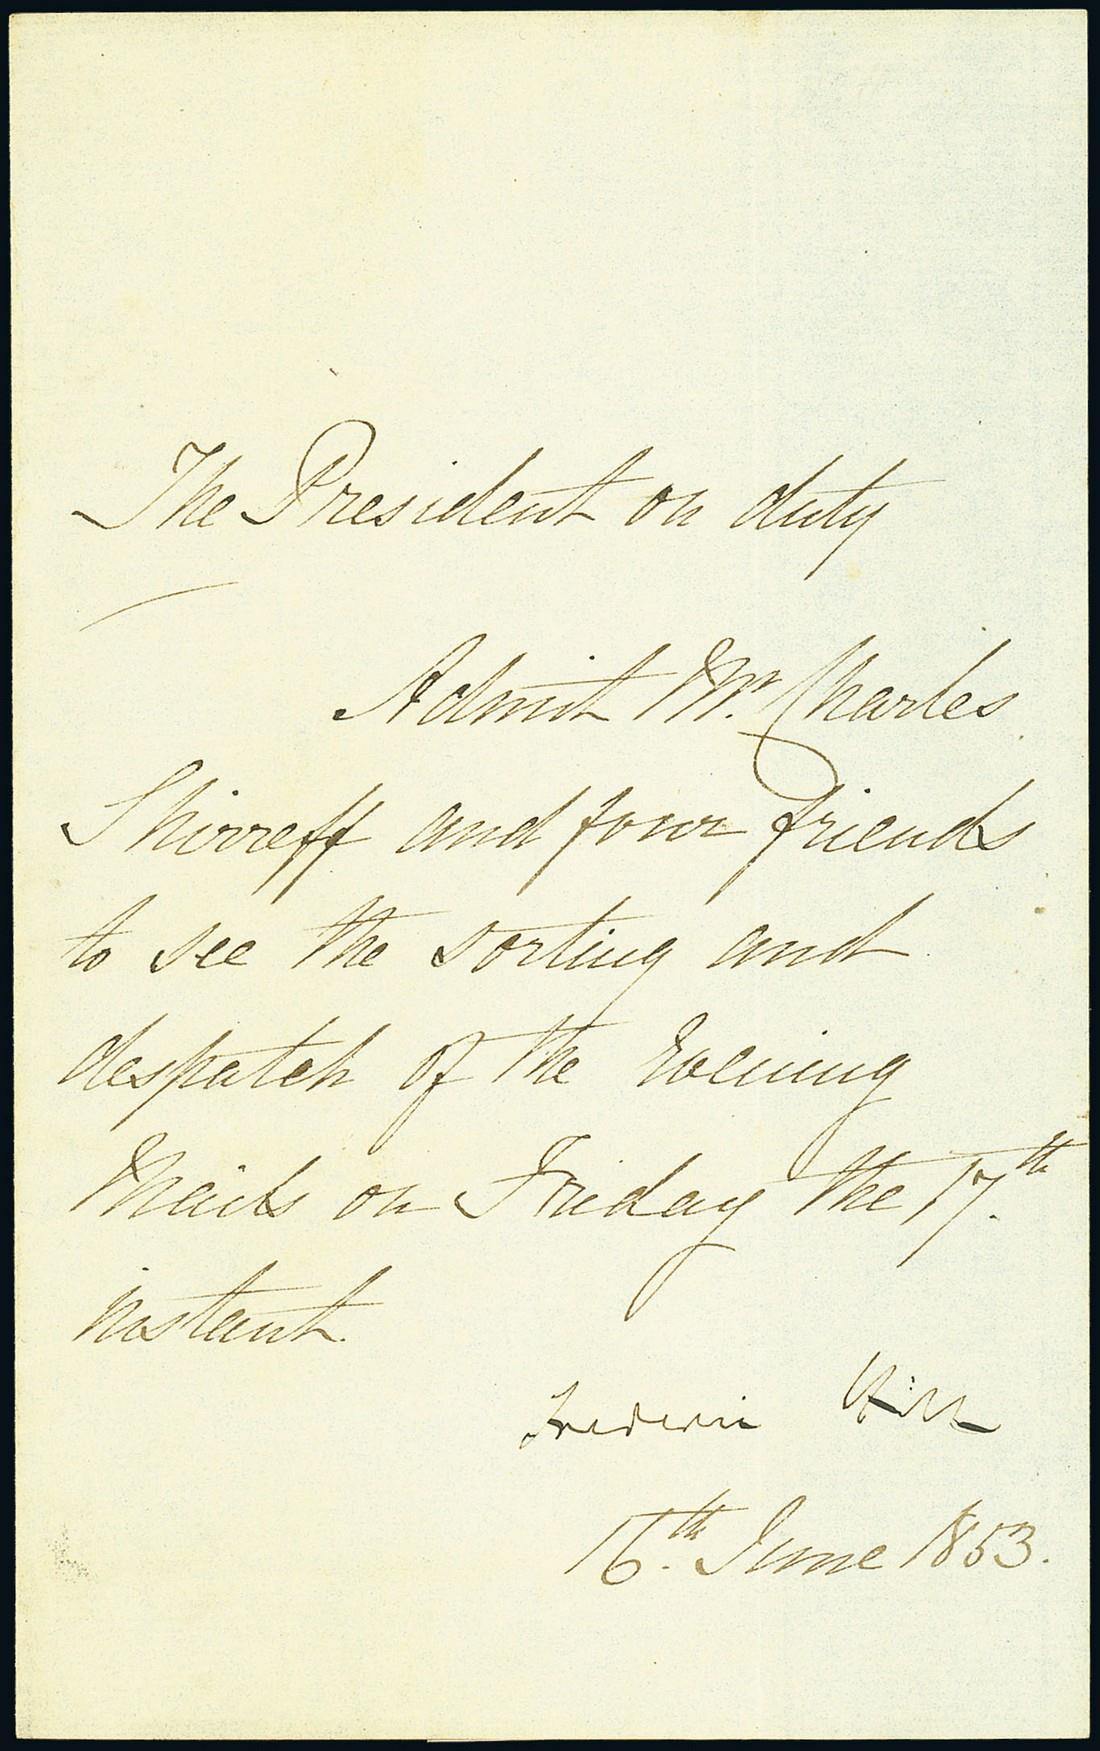 The President on duty
Admit Mr. Charles
Shirreff and four friends
to see the sorting and
despatch of the Evening
Mails on Friday the 17th
instant.
Frederic Hill
16th. June 1853.